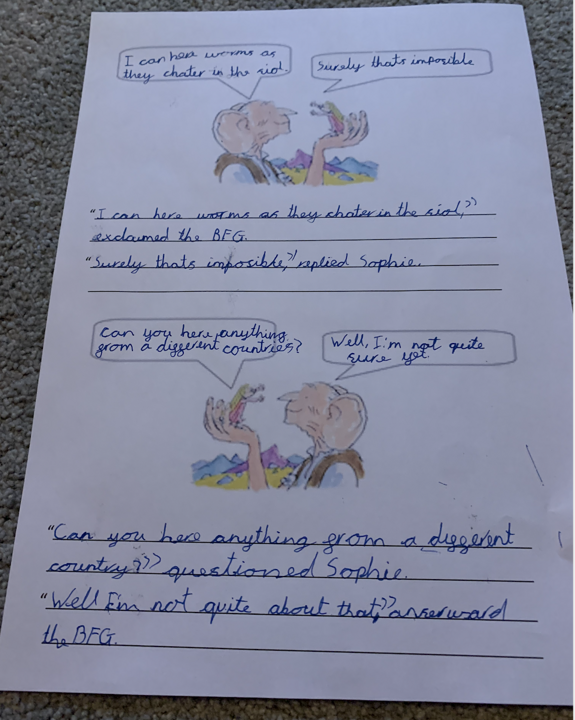 I can here worms as
they chater in the siol.
Surely thats imposible
"I can here worms as they chater in the siol,"
exclaumed the BFG.
"Surely thats imposible," replied Sophie.
Can you here anything
from a different countries?
Well, I'm not quite
sure yet.
"Can you here anything from a different
country?" questioned Sophie.
"Well I'm not quite about that," anserward
the BFG.